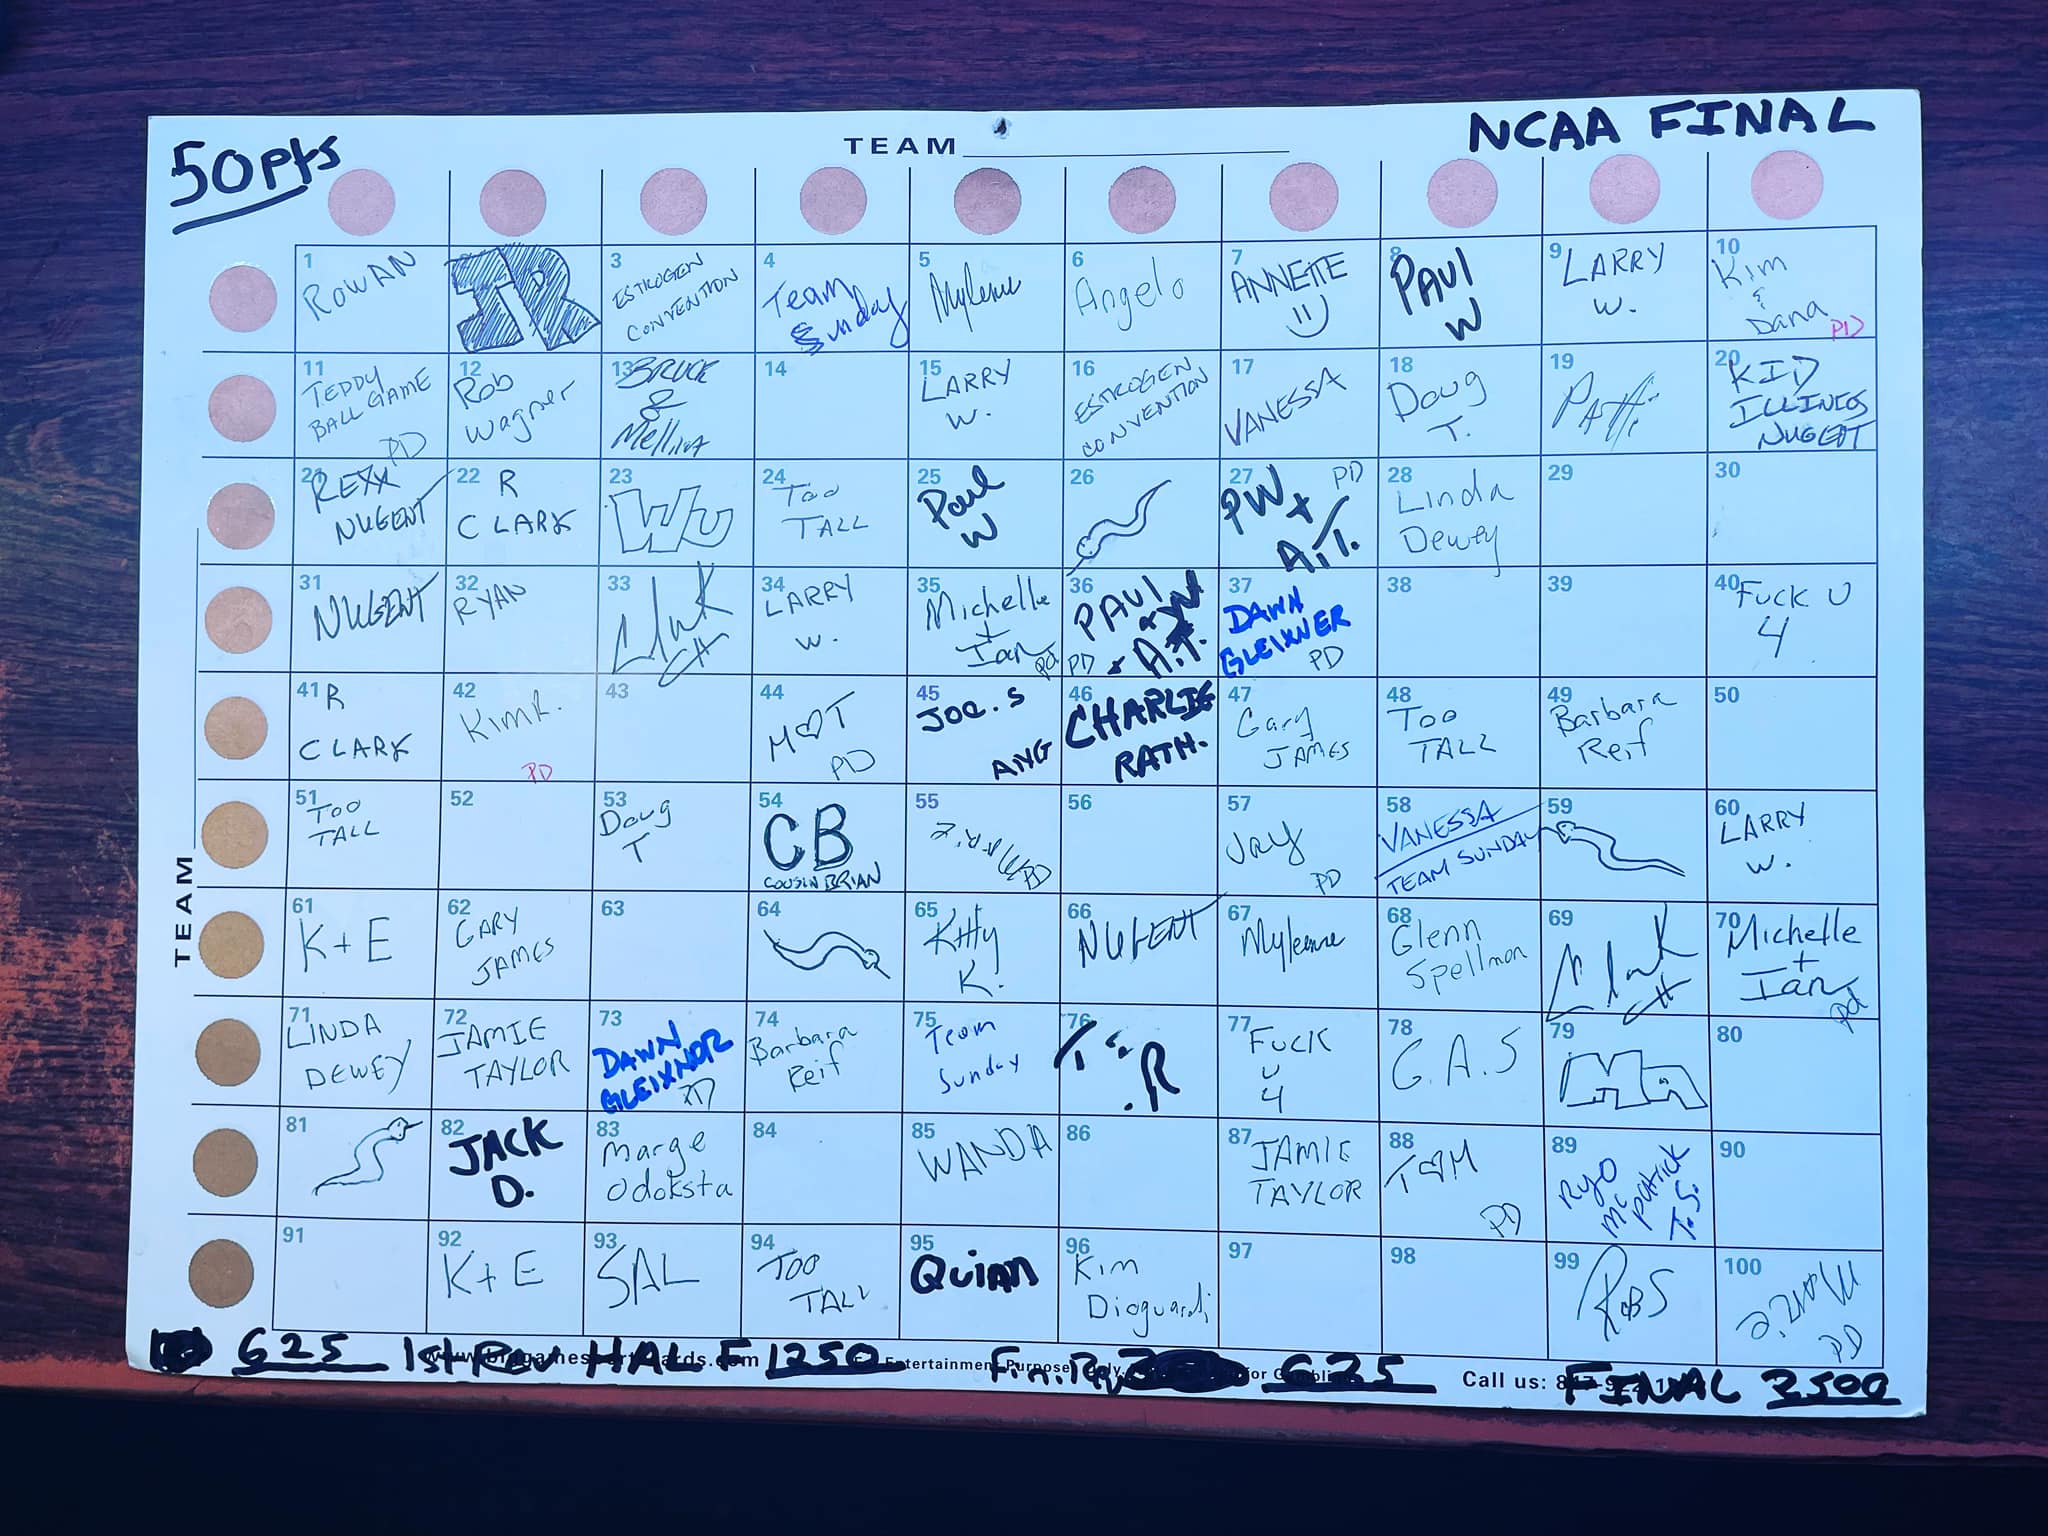 50pts
TEAM
NCAA FINAL
TEAM
1 ROWAN
JR
3 ESTROGEN CONVENTION
4 Team Sunday
5 Mylene
6 Angelo
7 ANNETTE
8 PAUL W
9 LARRY W.
10 Kim & Dana PD
11 TEDDY BALL GAME PD
12 Rob Wagner
13 BRUCE & Mellissa
14
15 LARRY W.
16 ESTROGEN CONVENTION
17 VANESSA
18 Doug T.
19 Patti
20 KID ILLINIOS NUGENT
21 REXX NUGENT
22 R CLARK
23 WU
24 Too TALL
25 Paul W
26
27 PW + A.T. PD
28 Linda Dewey
29
30
31 NUGENT
32 RYAN
33
34 LARRY W.
35 Michelle + Ian pd
36 PAUL + A.T. PD
37 DAWN GLEIXNER PD
38
39
40 Fuck U 4
41 R CLARK
42 Kim R. PD
43
44 M♡T PD
45 JOE.S ANG
46 CHARLIE RATH.
47 Gary JAMES
48 Too TALL
49 Barbara Reif
50
51 Too TALL
52
53 Doug T
54 CB COUSIN BRIAN
55 PD
56
57 Jay PD
58 VANESSA TEAM SUNDAY
59
60 LARRY W.
61 K+E
62 GARY JAMES
63
64
65 Kitty K.
66 NUGENT
67 Myleene
68 Glenn Spellman
69
70 Michelle + Ian pd
71 LINDA DEWEY
72 JAMIE TAYLOR
73 DAWN GLEIXNOR PD
74 Barbara Reif
75 Team Sunday
76
77 FUCK U 4
78 G.A.S
79
80
81
82 JACK D.
83 Marge Odoksta
84
85 WANDA
86
87 JAMIE TAYLOR
88 T♡M PD
89 RYO McPatrick J.S.
90
91
92 K+E
93 SAL
94 Too TALL
95 QUINN
96 Kim Dioguardi
97
98
99 ROB S
100 PD
625 1st Rev HALF 1250 Fin. Rev 625 FINAL 2500
Entertainment Purposes
Call us: